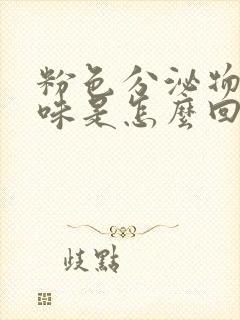 粉色分泌物
味是怎麼回
歧點